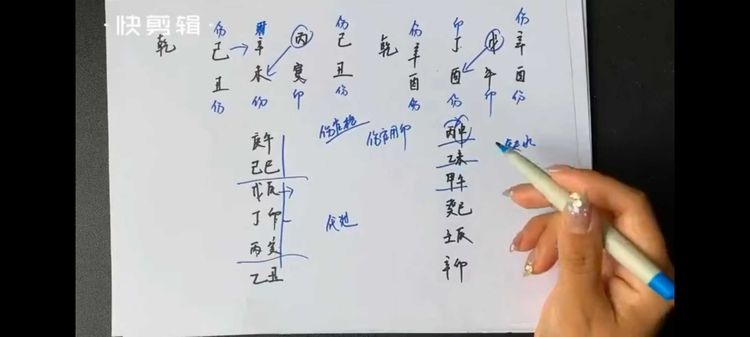 快剪辑
伤 财 伤 伤 印 伤
乾 己 辛 丙 己 乾 辛 丁 戊 辛
丑 未 寅 丑 酉 酉 午 酉
伤 伤 印 伤 伤 伤 印 伤
庚午 伤官格 伤官用印 丙申
己巳 乙未
戊辰 甲午
丁卯 癸巳
丙寅 壬辰
乙丑 辛卯